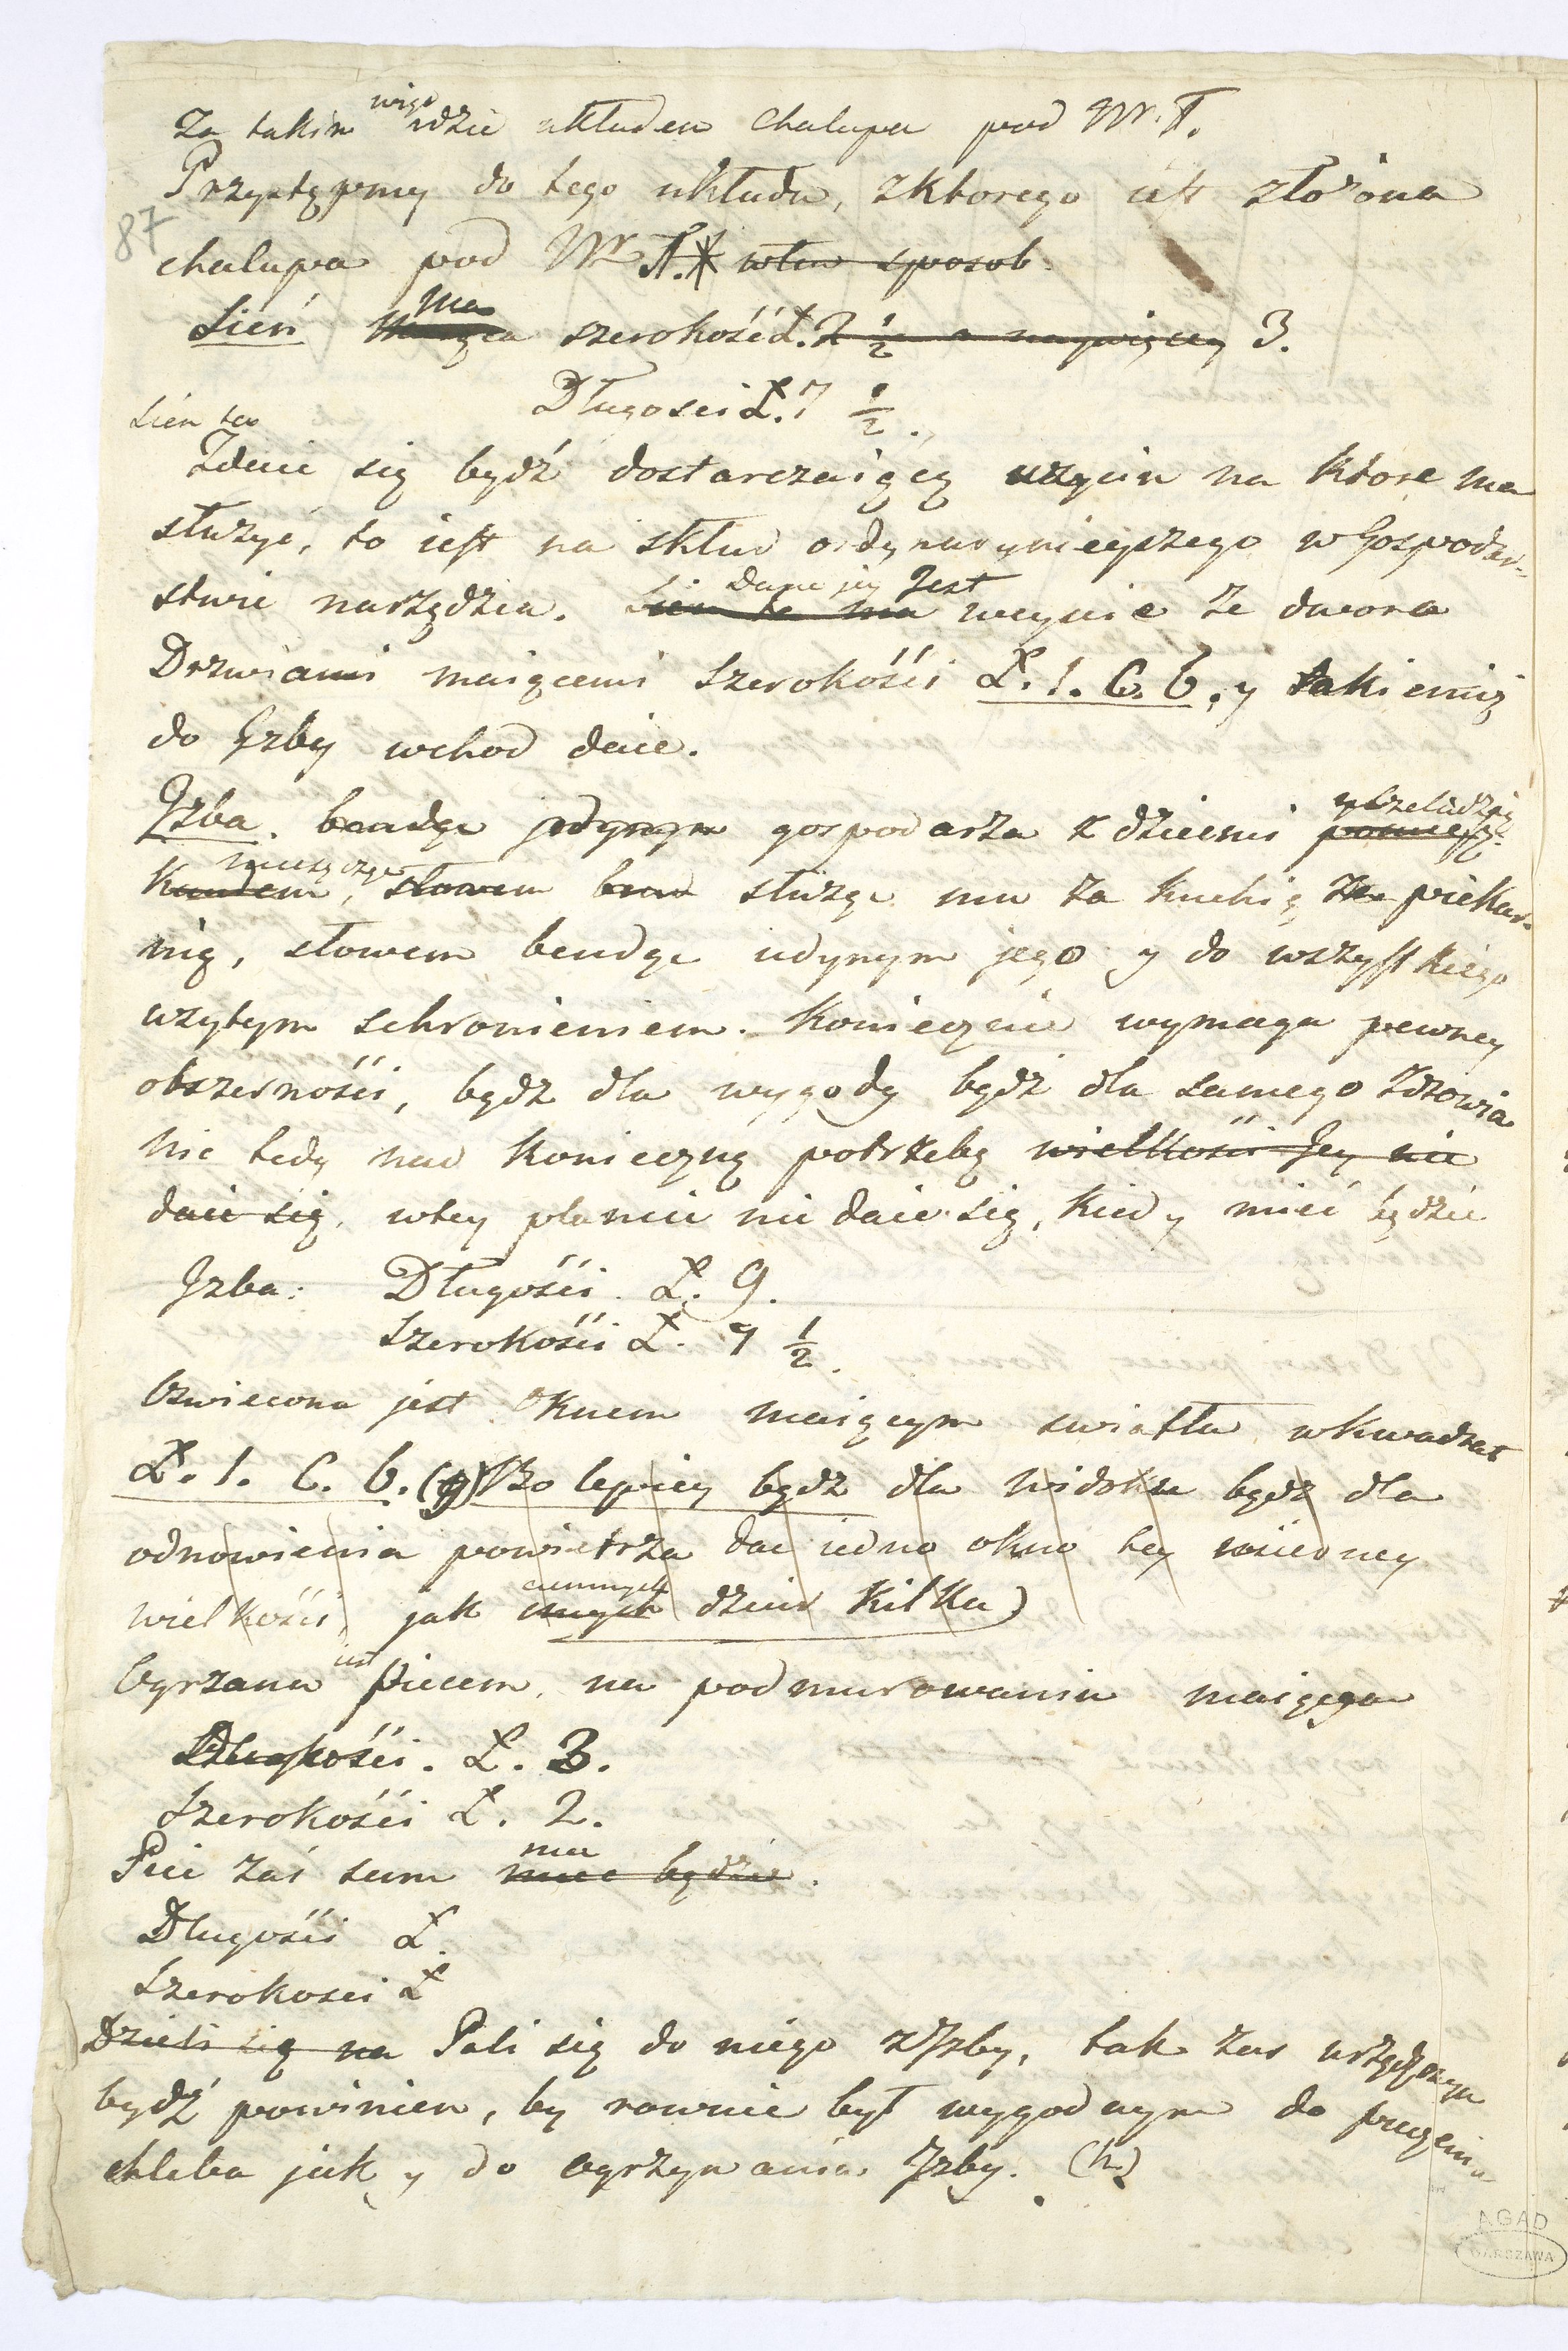 Za takim więc idzie układem chalupa pod Nr. 1.
Przystępmy do tego układu, zktorego iest złożona
87
chalupa pod Nr 1. wten sposob.
Sień ma szerokość Ł. 2 1/2 a naywięcey 3.
Długosci Ł. 7 1/2.
Sień ta
Zdaie się bydź dostarczaiącą uzyciu na ktore ma
służyć, to iest na skład ordynaryinieyszego w Gospodar-
stwie narzędzia. Sien ta ma Dane jey Jest weyscie ze dwora
Drzwiami maiącemi Szerokości Ł. 1. C. 6. y takiemiż
do Jzby wchod daie.
Jzba. bendąc jedynym gospodarza z dziecmi y czeladzią pomiesz-
kaniem, mieszczące słowem służąc mu za kuchię za piekar-
nią, słowem bendąc iedynym jego y do wszystkiego
uzytym schronieniem. Koniecznie wymaga pewney
obszerności, bądz dla wygody bądź dla samego Zdrowia
nic tedy nad konieczną potrzebę wielkości Jey nie
daie się, wtey planie nie daie się, kiedy mieć będzie
Jzba: Długości Ł. 9.
Szerokości Ł. 7 1/2.
Oswiecona jest Oknem maiącym swiatła wkwadrat
Ł. 1. C. 6. (g) Bo lepiey bądz dla widoku bądz dla
odnowienia powietrza dac iedno okno tey wsiedney
wielkości, jak ciemnych dziur kilka)
Ogrzana iest Piecem, na podmurowaniu maiącego
Długości. Ł. 3.
Szerokości Ł. 2.
Piec zaś sam ma miec będzie.
Długości Ł.
Szerokosci Ł
Dzieli się na Pali się do niego zJzby, tak zas urządzonym
bydź powinien, by rownie był wygodnym do pieczenia
chleba jak y do ogrzywania Jzby. (h.)
AGAD
WARSZAWA